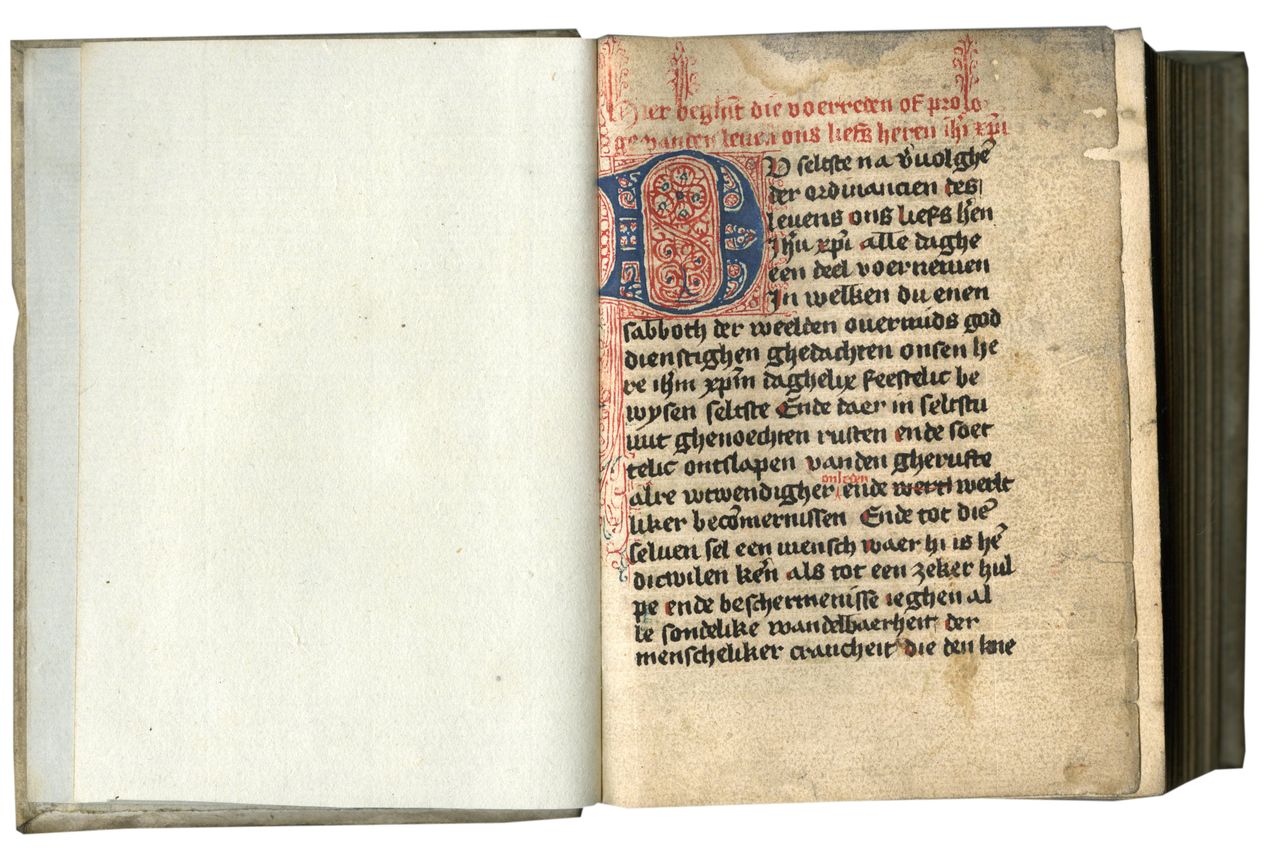 Hier beghīt die voerreden of prolo
ge vanden leuen ons liefs heren ih̄u xp̄i
DU seltste na v̄uolghē
der ordinancien des
leuens ons liefs h̄en
Ih̄u xp̄i alle daghe
een deel voernemen
In welken du enen
sabboth der weelden ouermids god
dienstighen ghedachten onsen he
re ih̄m xp̄m daghelix feestelic be
wysen seltste Ende daer in seltstu
mit ghenoechten rusten ende soet
telic ontslapen vanden gherufte
alre wtwendigher ende werlt
liker becōmernissen Ende tot die
seluen sel een mensch waer hi is hē
dicwilen kērn als tot een zeker hul
pe ende beschermenisse ieghen al
le sondelike wandelbaerheit der
menscheliker crancheit die den kne